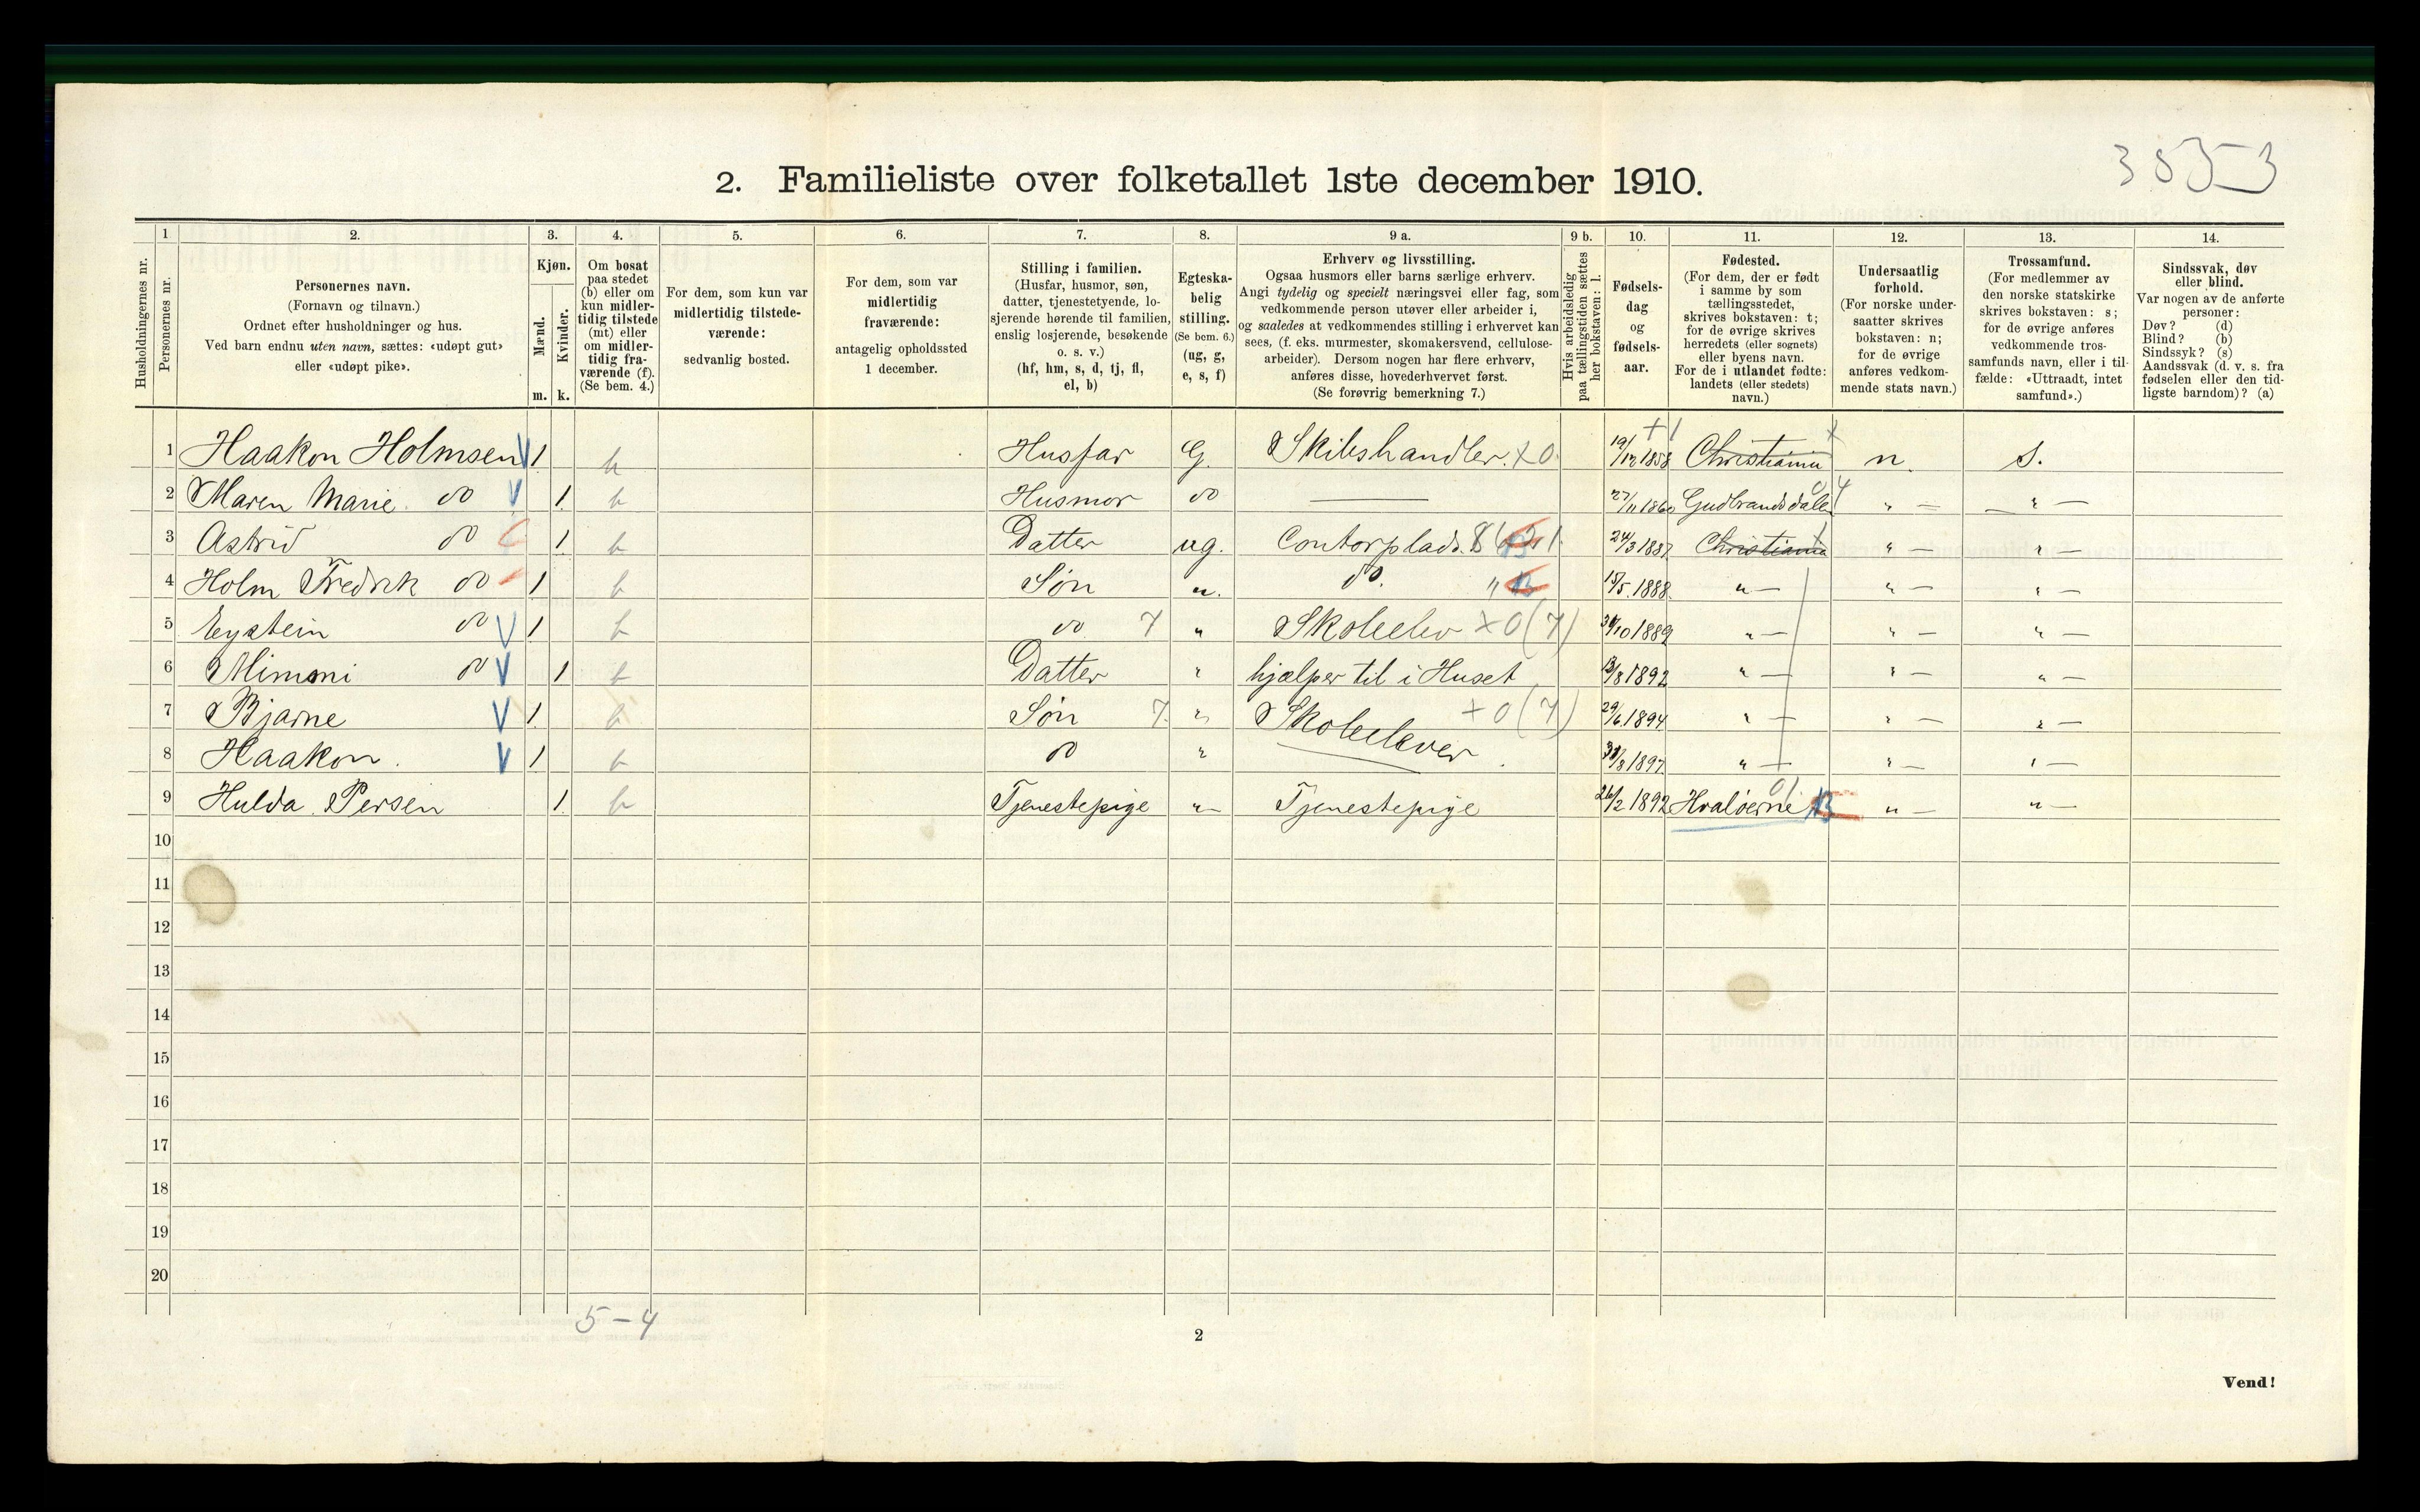 3853
2. Familieliste over folketallet 1ste december 1910.
1 2. 3. 4. 5. 6. 7. 8. 9 a. 9 b. 10. 11. 12. 13. 14.
Husholdningernes nr.
Personernes nr.
Personernes navn.
(Fornavn og tilnavn.)
Ordnet efter husholdninger og hus.
Ved barn endnu uten navn, sættes: «udøpt gut»
eller «udøpt pike».
Kjøn.
Mænd.
Kvinder.
m. k.
Om bosat
paa stedet
(b) eller om
kun midler-
tidig tilstede
(mt) eller
om midler-
tidig fra-
værende (f).
(Se bem. 4.)
For dem, som kun var
midlertidig tilstede-
værende:
sedvanlig bosted.
For dem, som var
midlertidig
fraværende:
antagelig opholdssted
1 december.
Stilling i familien.
(Husfar, husmor, søn,
datter, tjenestetyende, lo-
sjerende hørende til familien,
enslig losjerende, besøkende
o. s. v.)
(hf, hm, s, d, tj, fl,
el, b)
Egteska-
belig
stilling.
(Se bem. 6.)
(ug, g,
e, s, f)
Erhverv og livsstilling.
Ogsaa husmors eller barns særlige erhverv.
Angi tydelig og specielt næringsvei eller fag, som
vedkommende person utøver eller arbeider i,
og saaledes at vedkommendes stilling i erhvervet kan
sees, (f. eks. murmester, skomakersvend, cellulose-
arbeider). Dersom nogen har flere erhverv,
anføres disse, hovederhvervet først.
(Se forøvrig bemerkning 7.)
Hvis arbeidsledig
paa tællingstiden sættes
her bokstaven: l.
Fødsels-
dag
og
fødsels-
aar.
Fødested.
(For dem, der er født
i samme by som
tællingsstedet,
skrives bokstaven: t;
for de øvrige skrives
herredets (eller sognets)
eller byens navn.
For de i utlandet fødte:
landets (eller stedets)
navn.)
Undersaatlig
forhold.
(For norske under-
saatter skrives
bokstaven: n;
for de øvrige
anføres vedkom-
mende stats navn.)
Trossamfund.
(For medlemmer av
den norske statskirke
skrives bokstaven: s;
for de øvrige anføres
vedkommende tros-
samfunds navn, eller i til-
fælde: «Uttraadt, intet
samfund».)
Sindssvak, døv
eller blind.
Var nogen av de anførte
personer:
Døv? (d)
Blind? (b)
Sindssyk? (s)
Aandssvak (d. v. s. fra
fødselen eller den tid-
ligste barndom)? (a)
1 Haakon Holmsen V 1 b Husfar G. Skibshandler. X0 19/12 1858 Christiania n. S.
2 Maren Marie do V 1. b Husmor do — 27/11 1860 Gudbrandsdalen " — " —
3 Astrid do 1 b Datter ug. Contorplads. 24/3 1887 Christiania " — " —
4 Holm Fredrik do 1 b Søn ". do. " 15/5. 1888. " — " — " —
5 Eystein do V 1 b do 7 " Skoleelev X0 (7) 10 1889 " — " — " —
6 Mimmi do V 1 b Datter " hjælper til i Huset 8 1892 " — " — " —
7 Bjarne V 1. b Søn 7. " Skoleelever X0 (7) 29/6. 1894. " — " — " —
8 Haakon. V 1 b do " 8 1897. " — " — " —
9 Hulda Persen 1. b Tjenestepige " — Tjenestepige 26/2 1892 Hvaløerne " — " —
10
11
12
13
14
15
16
17
18
19
20
5 – 4
2
Vend!